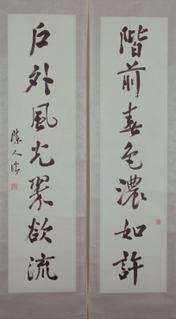 階前春色濃如許
戶外風光翠欲流